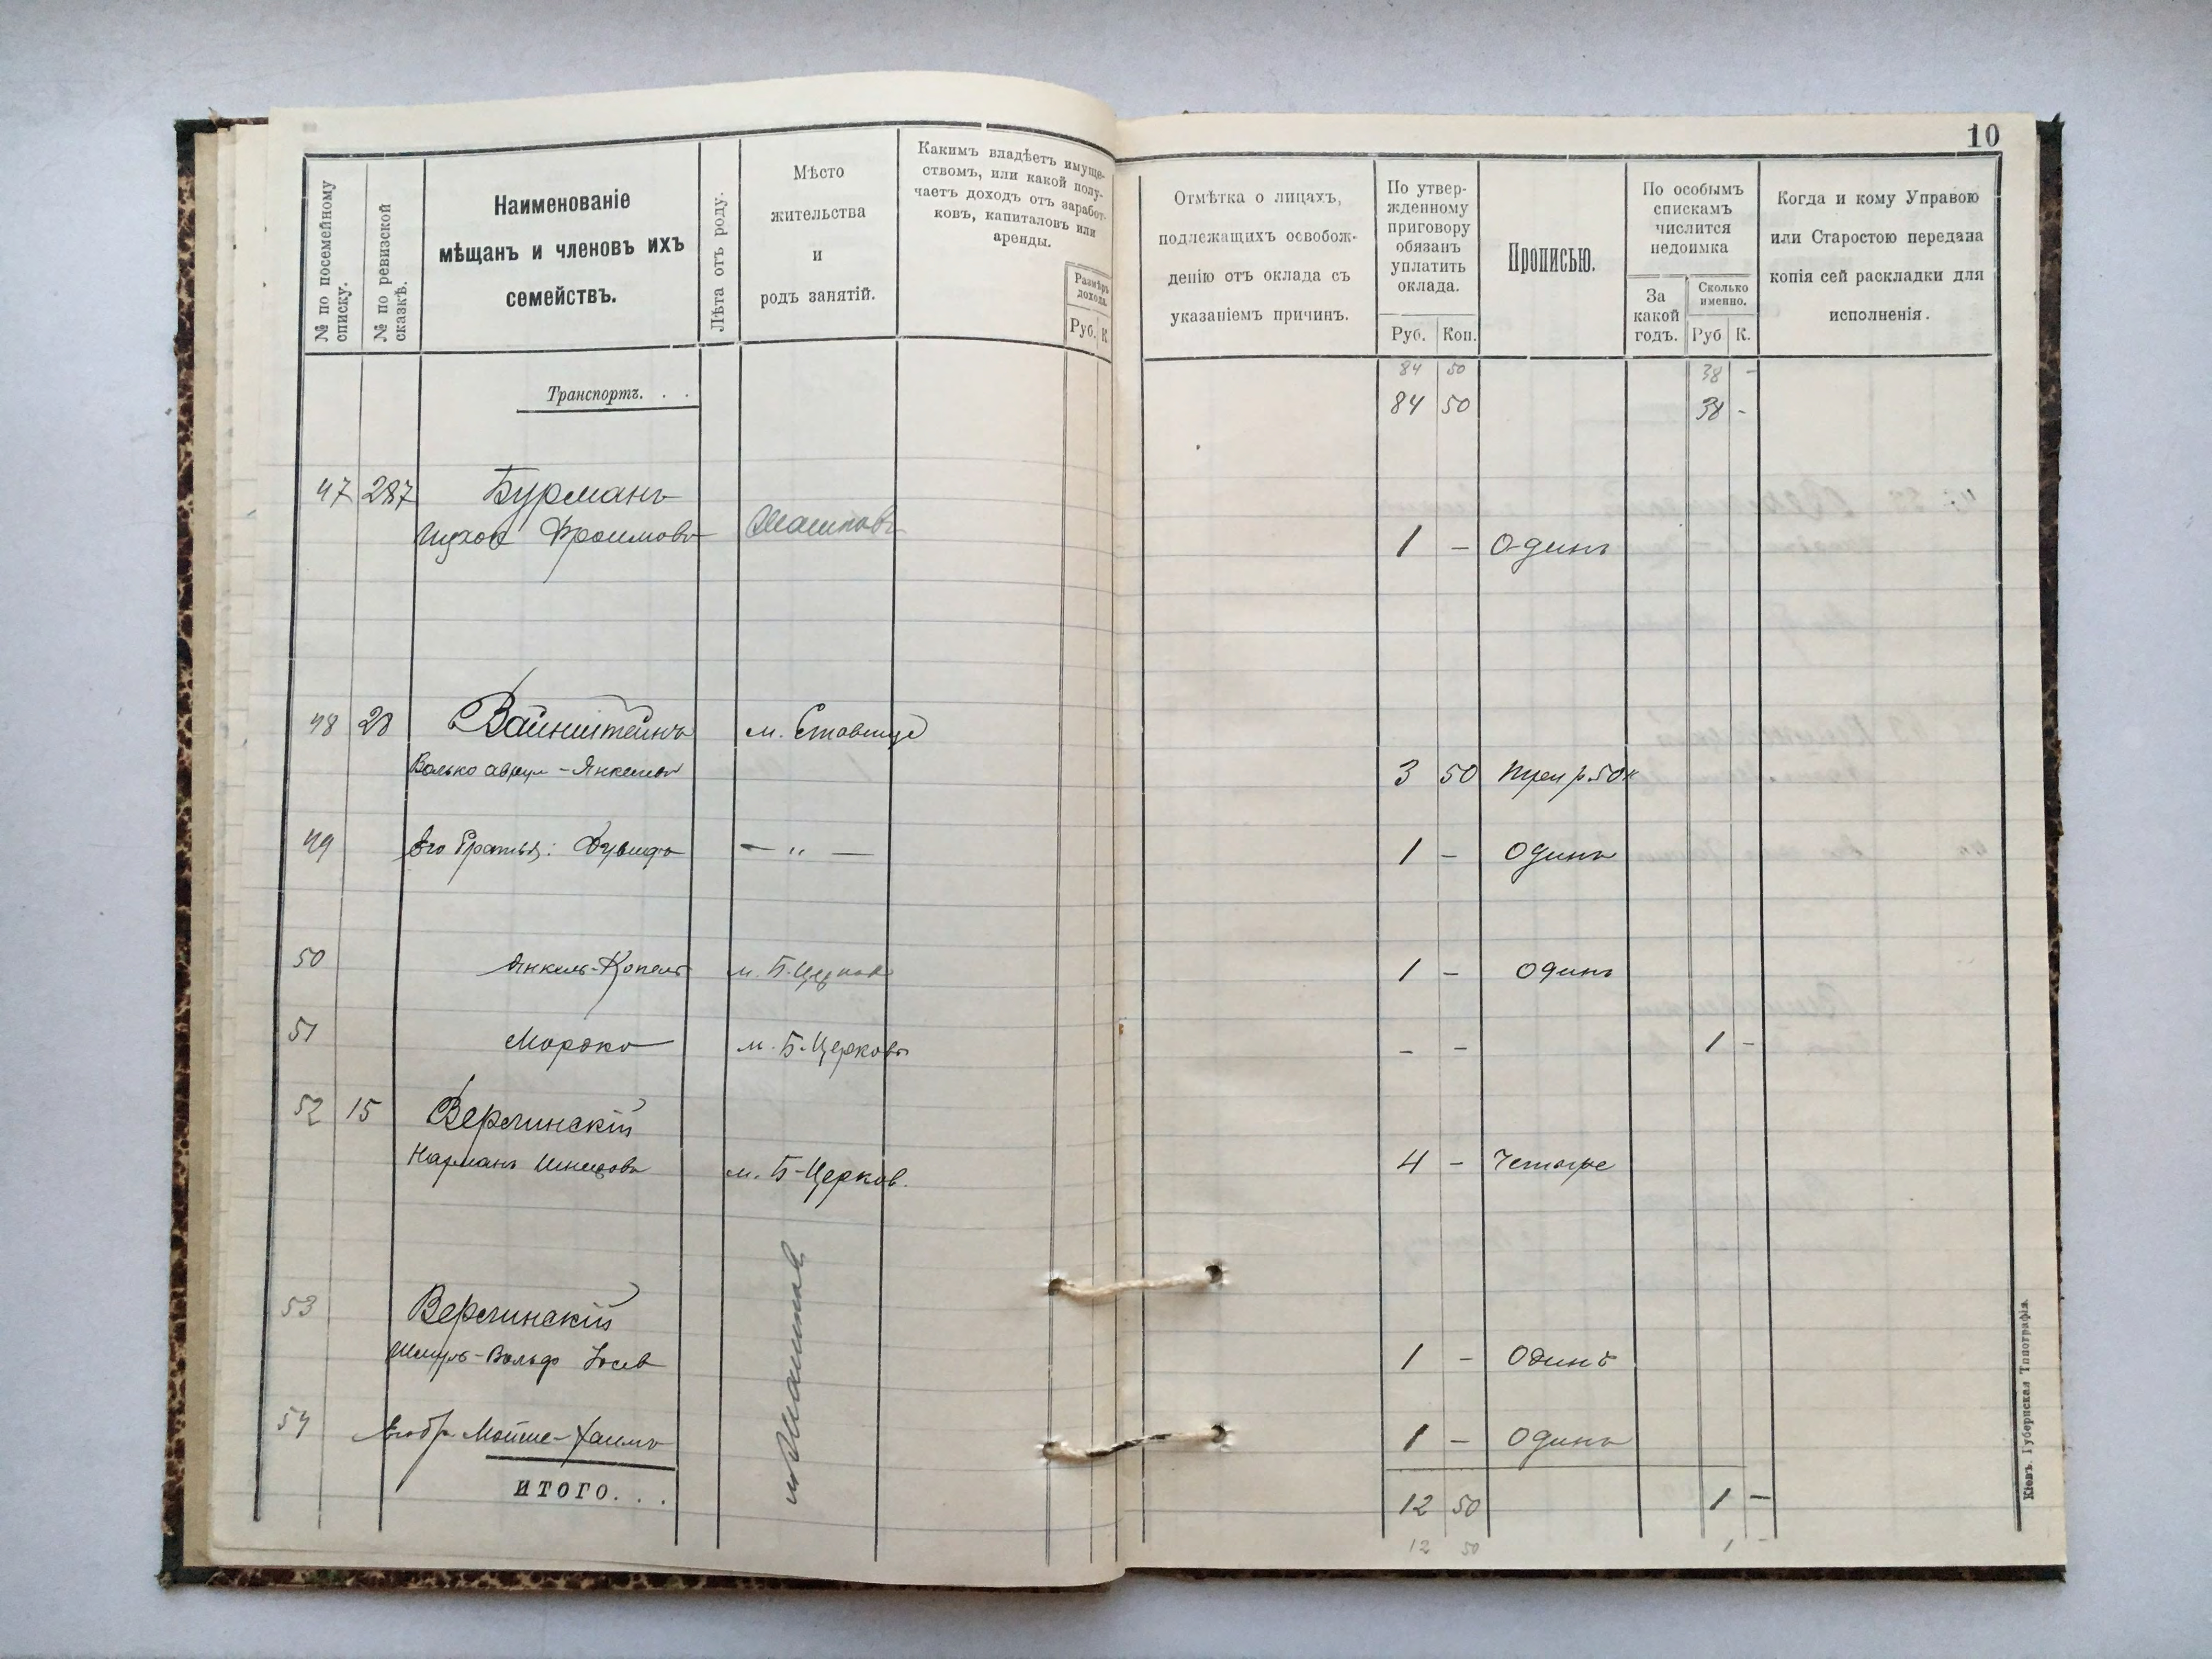 10
№ по посемейному списку.
№ по ревизской сказкѣ.
Наименованіе
мѣщанъ и членовъ ихъ
семействъ.
Лѣта отъ роду.
Мѣсто
жительства
и
родъ занятій.
Какимъ владѣетъ имуще-
ствомъ, или какой полу-
чаетъ доходъ отъ заработ-
ковъ, капиталовъ или
аренды.
Размѣръ
дохода.
Руб. К
Отмѣтка о лицахъ,
подлежащихъ освобож-
денію отъ оклада съ
указаніемъ причинъ.
По утвер-
жденному
приговору
обязанъ
уплатить
оклада.
Руб. Коп.
Прописью.
По особымъ
спискамъ
числится
недоимка
За
какой
годъ.
Сколько
именно.
Руб К.
Когда и кому Управою
или Старостою передана
копія сей раскладки для
исполненія.
84 50 38 -
Транспортъ. . . 84 50 38 -
47 287 Бурманъ
Фроимовъ 1 - Одинъ
48 28 Вайнштейнъ м. Ставище
Волько Аврум-Янкелев 3 50 три р. 50 к
49 Его братья: Дувидъ - " - 1 - Одинъ
50 Янкель-Копель м. Б. Церковь 1 - Одинъ
51 Мордко м. Б. Церковь - - 1 -
52 15 Верлинскій
Нахманъ м. Б-Церков. 4 - Четыре
53 Верлинскій
Шмуль-Вольф Іосев 1 - Одинъ
54 Его бр. Мойше-Хаимъ 1 - Одинъ
ИТОГО. . . 12 50 1 -
12 50 1 -
Кіевъ. Губернская Типографія.